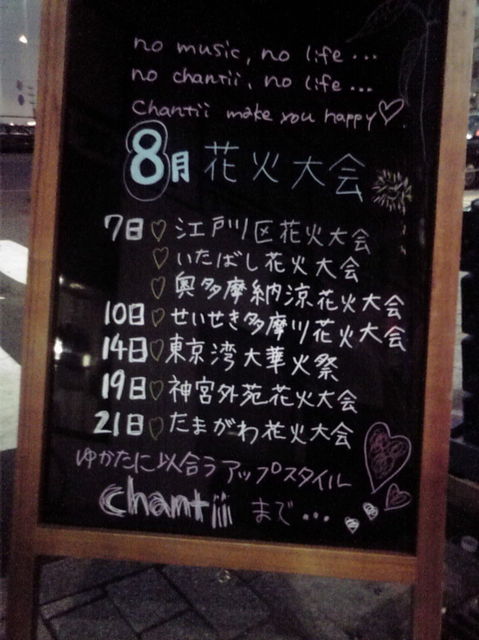 no music, no life...
no chantii, no life...
Chantii make you happy♡.
8月 花火大会
7日♡江戸川区花火大会
♡いたばし花火大会
♡奥多摩納涼花火大会
10日♡せいせき多摩川花火大会
14日♡東京湾大華火祭
19日♡神宮外苑花火大会
21日♡たまがわ花火大会
ゆかたに以合うアップスタイル
chantiii まで...